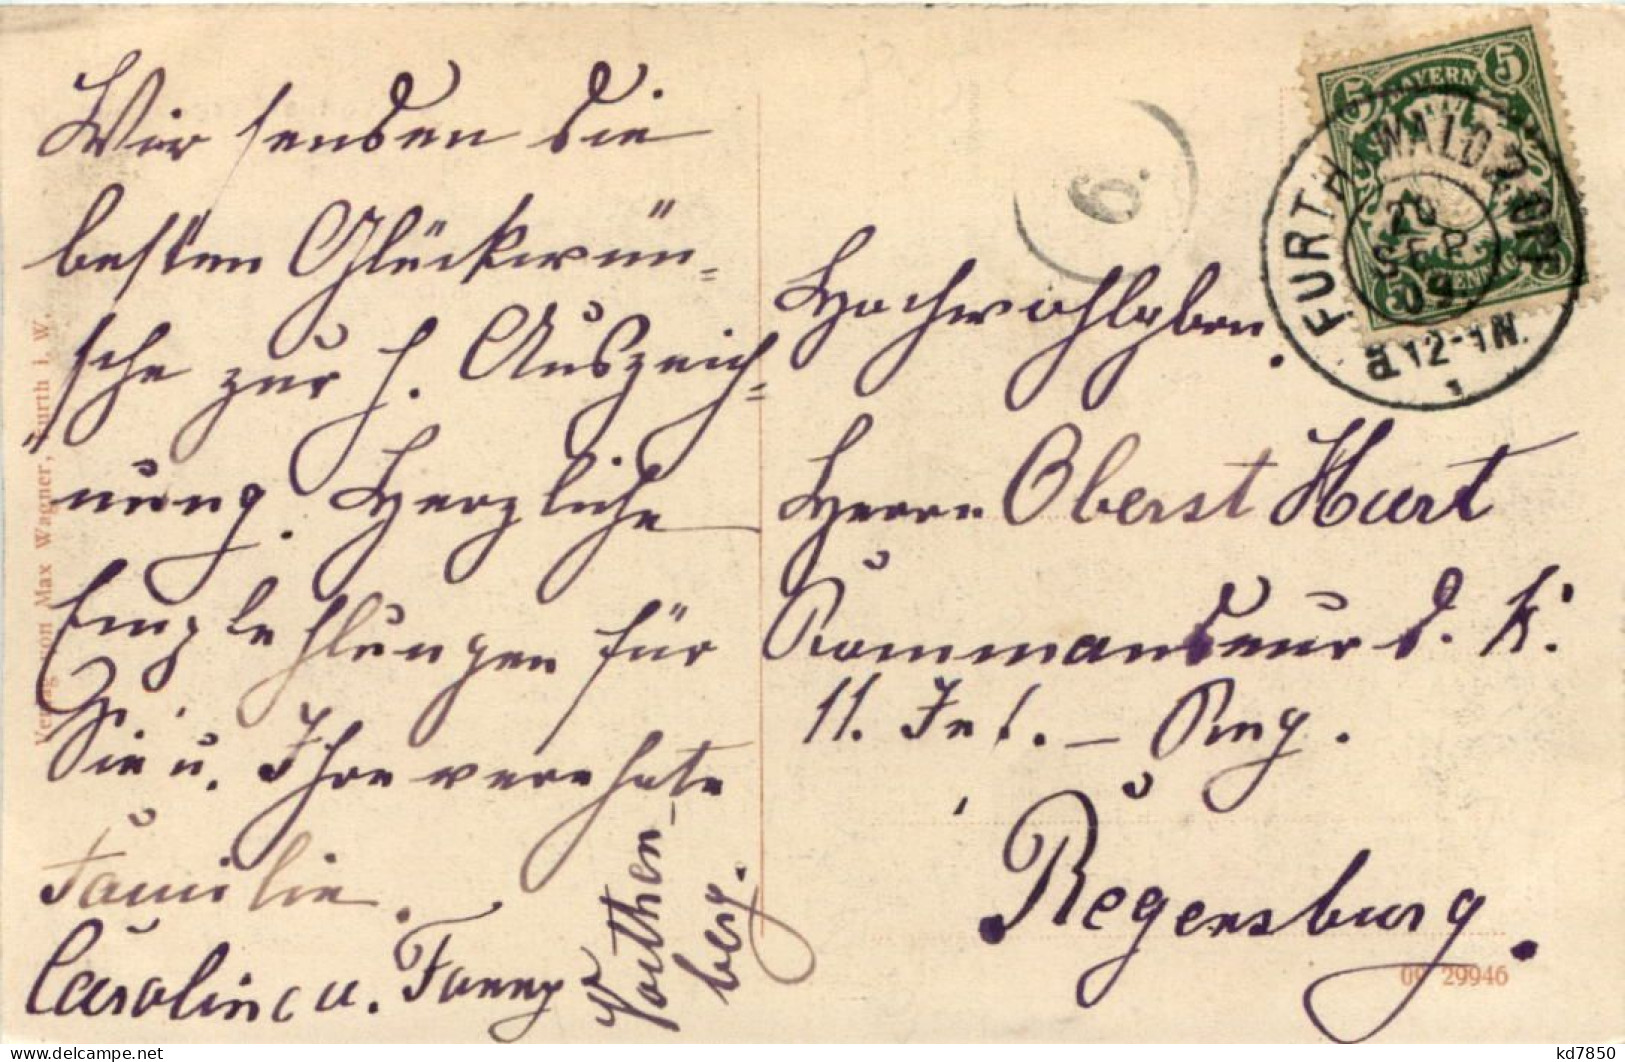 Wir senden die
besten Glückwün=
sche zur h. Auszeich=
nung. Herzliche
Empfehlungen für
Sie u. Ihre verehrte
Familie.
Caroline u. Fanny
berg.
Hochwohlgeboren.
Herrn Oberst Hurt
Kommandeur d. K.
11. Inf. – Reg.
Regensburg.
6.
5 BAYERN 5
FURTH i. WALD 2. BHF.
20
SEP
09
12-1 N.
Verlag von Max Wagner, Furth i. W.
09 29946
kd7850